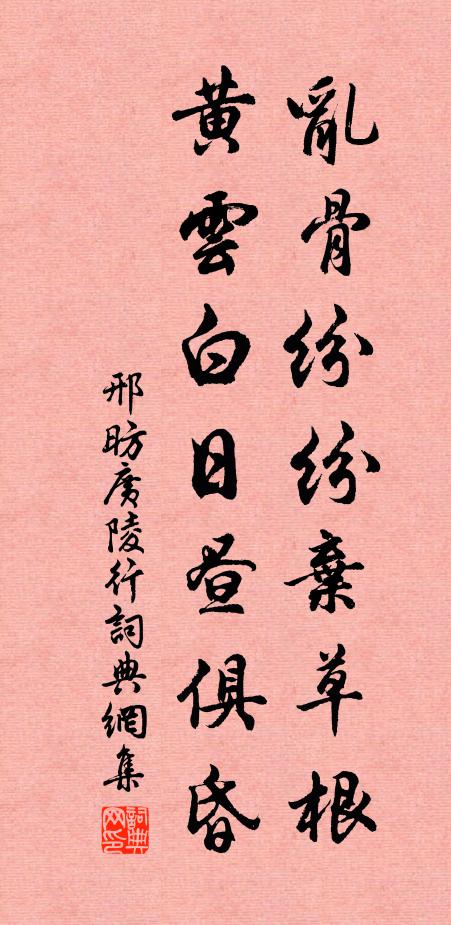 亂骨紛紛棄草根
黃雲白日晝俱昏
邢昉廣陵行詞典網集
詞典网印